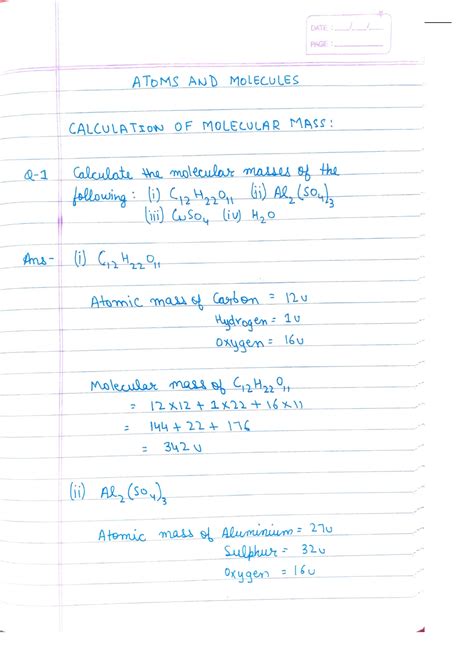 DATE: __/__/__
PAGE:
ATOMS AND MOLECULES
CALCULATION OF MOLECULAR MASS:
Q-1 Calculate the molecular masses of the
following: (i) C₁₂H₂₂O₁₁ (ii) Al₂(SO₄)₃
(iii) CuSO₄ (iv) H₂O
Ans- (i) C₁₂H₂₂O₁₁
Atomic mass of Carbon = 12u
Hydrogen = 1u
Oxygen = 16u
Molecular mass of C₁₂H₂₂O₁₁
= 12×12 + 1×22 + 16×11
= 144 + 22 + 176
= 342u
(ii) Al₂(SO₄)₃
Atomic mass of Aluminium = 27u
Sulphur = 32u
Oxygen = 16u